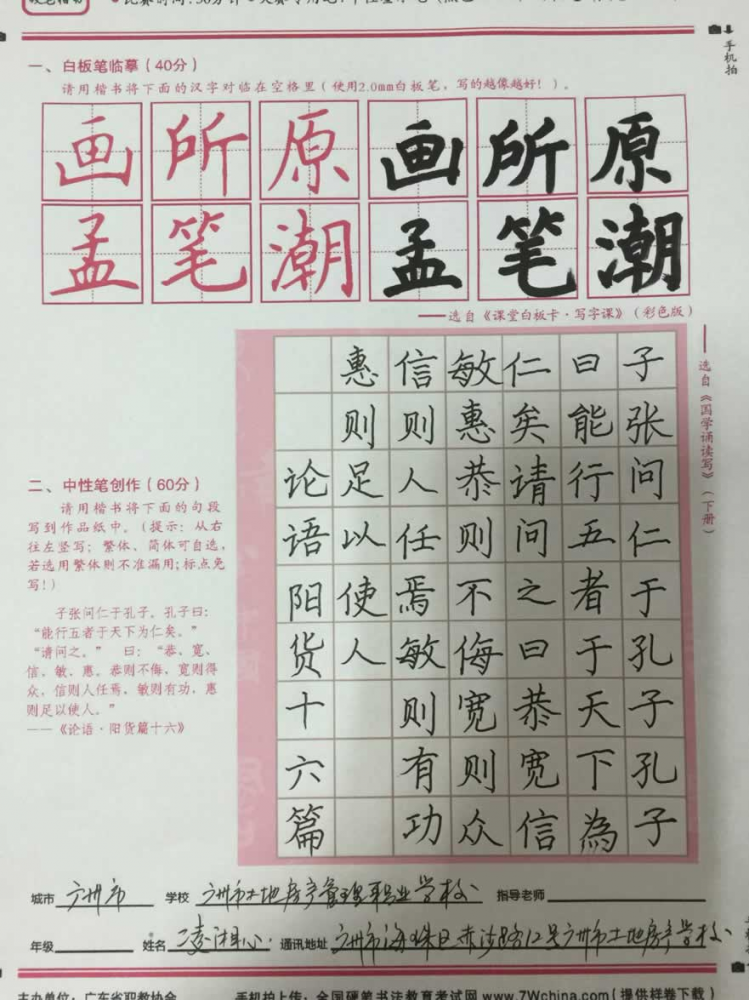 手机拍
一、白板笔临摹(40分)
请用楷书将下面的汉字对临在空格里(使用2.0mm白板笔,写的越像越好!)。
画 所 原 画 所 原
孟 笔 潮 孟 笔 潮
——选自《课堂白板卡·写字课》(彩色版)
——选自《国学诵读写》(下册)
子张问仁于孔子孔子
曰能行五者于天下為
仁矣请问之曰恭宽信
敏惠恭则不侮宽则众
信则人任焉敏则有功
惠则足以使人
论语阳货十六篇
二、中性笔创作(60分)
请用楷书将下面的句段
写到作品纸中。(提示:从右
往左竖写;繁体、简体可自选,
若选用繁体则不准漏用;标点免
写!)
子张问仁于孔子。孔子曰:
“能行五者于天下为仁矣。”
“请问之。” 曰:“恭、宽、
信、敏、惠。恭则不侮,宽则得
众,信则人任焉,敏则有功,惠
则足以使人。”
——《论语·阳货篇十六》
城市 广州市 学校 广州市土地房产管理职业学校 指导老师
年级 姓名 凌湘心 通讯地址 广州市海珠区赤沙路12号广州市土地房产学校
主办单位:广东省职教协会 手机拍上传:全国硬笔书法教育考试网www.7Wchina.com(提供样卷下载)